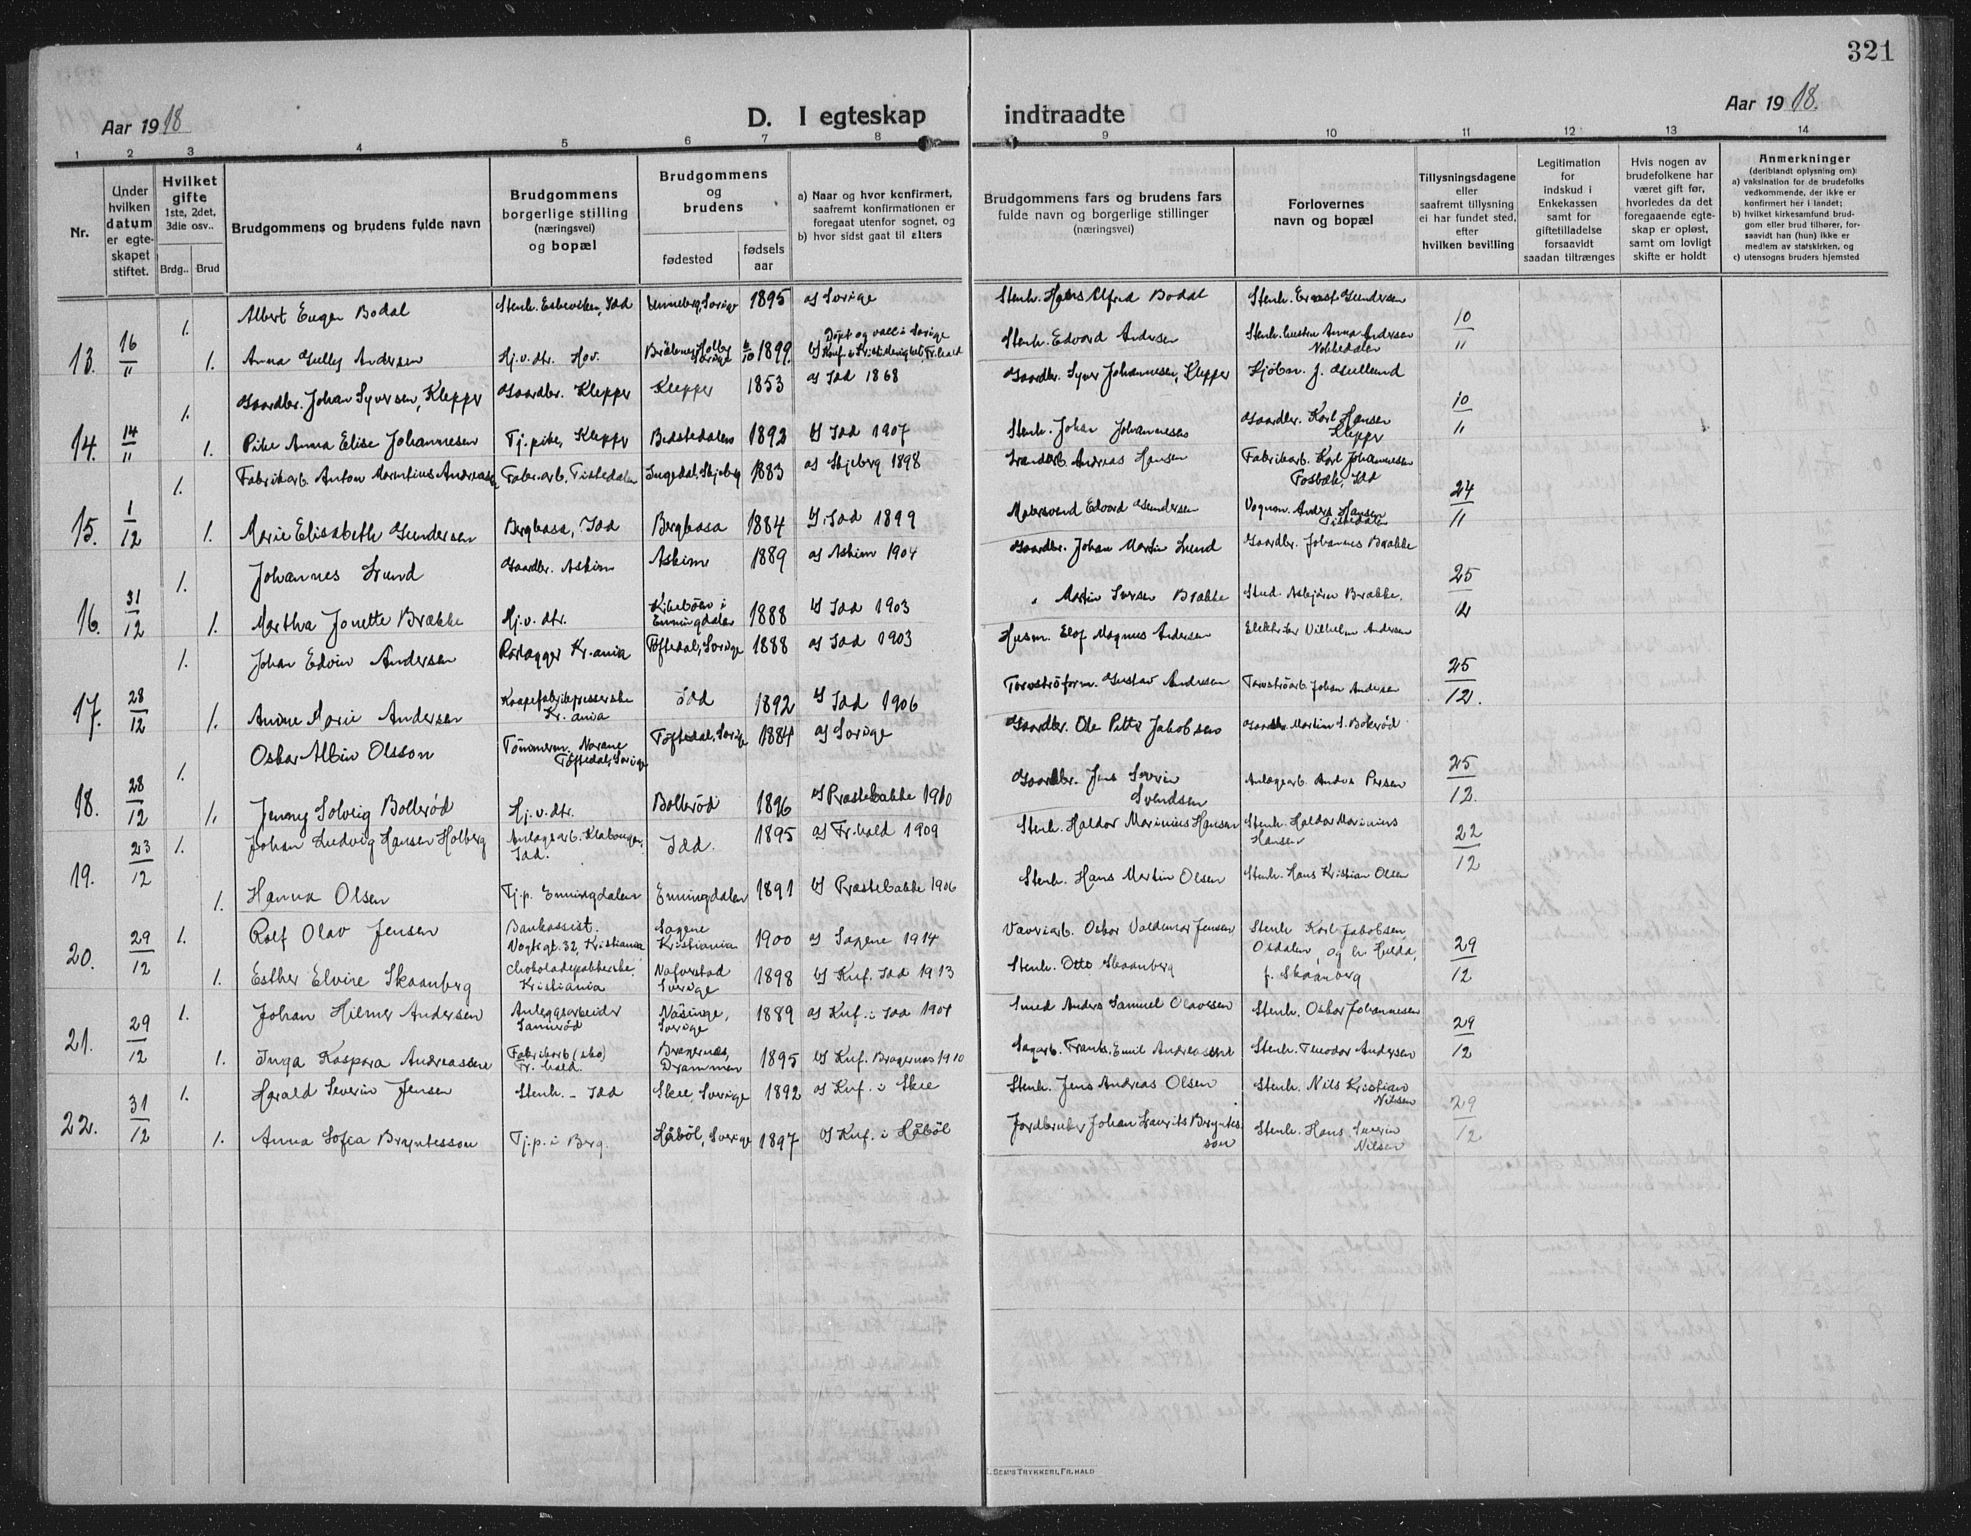 321
Aar 1918
D. I egteskap indtraadte
Aar 1918.
1 2 3 4 5 6 7 8 9 10 11 12 13 14
Nr.
Under hvilken datum er egteskapet stiftet.
Hvilket gifte
1ste, 2det, 3die osv..
Brdg..
Brud
Brudgommens og brudens fulde navn
Brudgommens borgerlige stilling (næringsvei) og bopæl
Brudgommens og brudens
fødested
fødsels aar
a) Naar og hvor konfirmert, saafremt konfirmationen er foregaat utenfor sognet, og
b) hvor sidst gaat til alters
Brudgommens fars og brudens fars fulde navn og borgerlige stillinger (næringsvei)
Forlovernes navn og bopæl
Tillysningsdagene eller saafremt tillysning ei har fundet sted, efter hvilken bevilling
Legitimation for indskud i Enkekassen samt for giftetilladelse forsaavidt saadan tiltrænges
Hvis nogen av brudefolkene har været gift før, hvorledes da det foregaaende egteskap er opløst, samt om lovligt skifte er holdt
Anmerkninger
(deriblandt oplysning om):
a) vaksination for de brudefolks vedkommende, der ikke er konfirmert her i landet;
b) hvilket kirkesamfund brudgom eller brud tilhører, forsaavidt han (hun) ikke er medlem av statskirken, og
c) utensogns bruders hjemsted
1. Albert Eugen Bodal Stenh. Esbeviken, Idd Sverige 1895 a) Sverige Stenh. Hans Alfred Bodal Stenh. Ernst Gundersen
13. 16/11 1. Anna Andersen Hj.v.dtr. Hov. Sverige 6/10 1899. Døpt og vacc. i Sverige b) Konf. i Fr.hald Stenh. Edvard Andersen Stenh. hustru Anna Andersen 10/11
1. Gaardbr. Johan Syversen, Klepper Gaardbr. Klepper Klepper 1853 a) Idd 1868 Gaardbr. Syver Johannesen, Klepper Kjøbm. J. Gullund
14. 14/11 1. Pike Anna Elise Johannesen Tj.pike, Klepper Bedstedalen 1892 b) Idd 1907 Stenh. Johan Johannesen Gaardbr. Karl Hansen Klepper 10/11
1. Fabrikarb. Anton Andreas Fabr.arb. Tistedalen Ingedal, Skjeberg 1883 a) Skjeberg 1898 Andreas Hansen Fabrikarb. Karl Johannesen Fosbæk, Idd
15. 1/12 1. Marie Elisabeth Gundersen Bergkasa, Idd Bergkasa 1884 b) Idd 1899 Malersvend Edvard Gundersen Vognm. Anders Hansen Tistedalen 24/11
1. Johannes Lund Gaardbr. Askim Askim 1889 a) Askim 1904 Gaardbr. Johan Martin Lund Gaardbr. Johannes Brække
16. 31/12 1. Martha Jonette Brække Hj.v.dtr. Enningdalen 1888 b) Idd 1903 " Martin Iversen Brække Stud. Asbjørn Brække. 25/12
1. Johan Edvin Andersen Rørlægger Kr.ania Töftedal, Sverige 1888 a) Idd 1903 Husm. Elof Magnus Andersen Elektriker Vilhelm Andersen
17. 28/12 1. Anine Marie Andersen Kr.ania Idd 1892 b) Idd 1906 Torvströform. Gustav Andersen Torvströarb. Johan Andersen 25/12.
1. Oskar Albin Olsson Tömmerm. Norane Töftedal, Sverige Töftedal, Sverige 1884 a) Sverige Gaardbr. Ole Petter Jakobsen Gaardbr. Martin S. Bokerød
18. 28/12 1. Jenny Solveig Bollerød Hj.v.dtr. Bollerød 1896 b) Prestebakke 1910 Gaardbr. Jens Severin Svendsen Anlægsarb. Persen 25/12.
19. 23/12 1. Johan Ludvig Hansen Holberg Anlægsarb. Idd. Idd. 1895 a) Fr.hald 1909 Stenh. Haldor Marinius Hansen Stenh. Haldor Marinius Hansen 22/12
1. Hanna Olsen Tj.p. Enningdalen Enningdalen 1891 b) Prestebakke 1906 Stenh. Hans Martin Olsen Stenh. Hans Kristian Olsen
20. 29/12 1. Rolf Olav Jensen Bankassist. Vogtsgt. 32, Kristiania Sagene Kristiania 1900 a) Sagene 1914 Oskar Valdemar Jensen Stenh. Karl Jakobsen,
1. Esther Elvire Skaanberg Kristiania Naverstad Sverige 1898 b) Knf. Idd 1913 Stenh. Otto Skaanberg og hr. Hilda, f. Skaanberg 29/12
21. 29/12 1. Johan Hilmer Andersen Anlegsarbeider Näsinge, Sverige 1889 a) Knf. i Idd 1904 Smed Anders Samuel Olavesen Stenh. Oskar Johannesen 29/12
1. Inga Kaspara Andreassene Fabrikarb (sko) Fr.hald. Bragernæs, Drammen 1895 b) Knf. Bragernæs 1910 Sagarb. Frants Emil Andreassene Stenh. Theodor Andersen
22. 31/12 1. Harald Severin Jensen Stenh. - Idd Skee, Sverige 1892 a) Knf. i Skee Stenh. Jens Andreas Olsen Stenh. Nils Kristian Nilsen 29/12
1. Anna Sofia Bryntesson Tj.p. i Berg. Håböl, Sverige 1897 b) Knf. i Håböl Jordbruker Johan Laurits Bryntesson Stenh. Hans Severin Nilsen
SEM'S TRYKKERI, FR.HALD